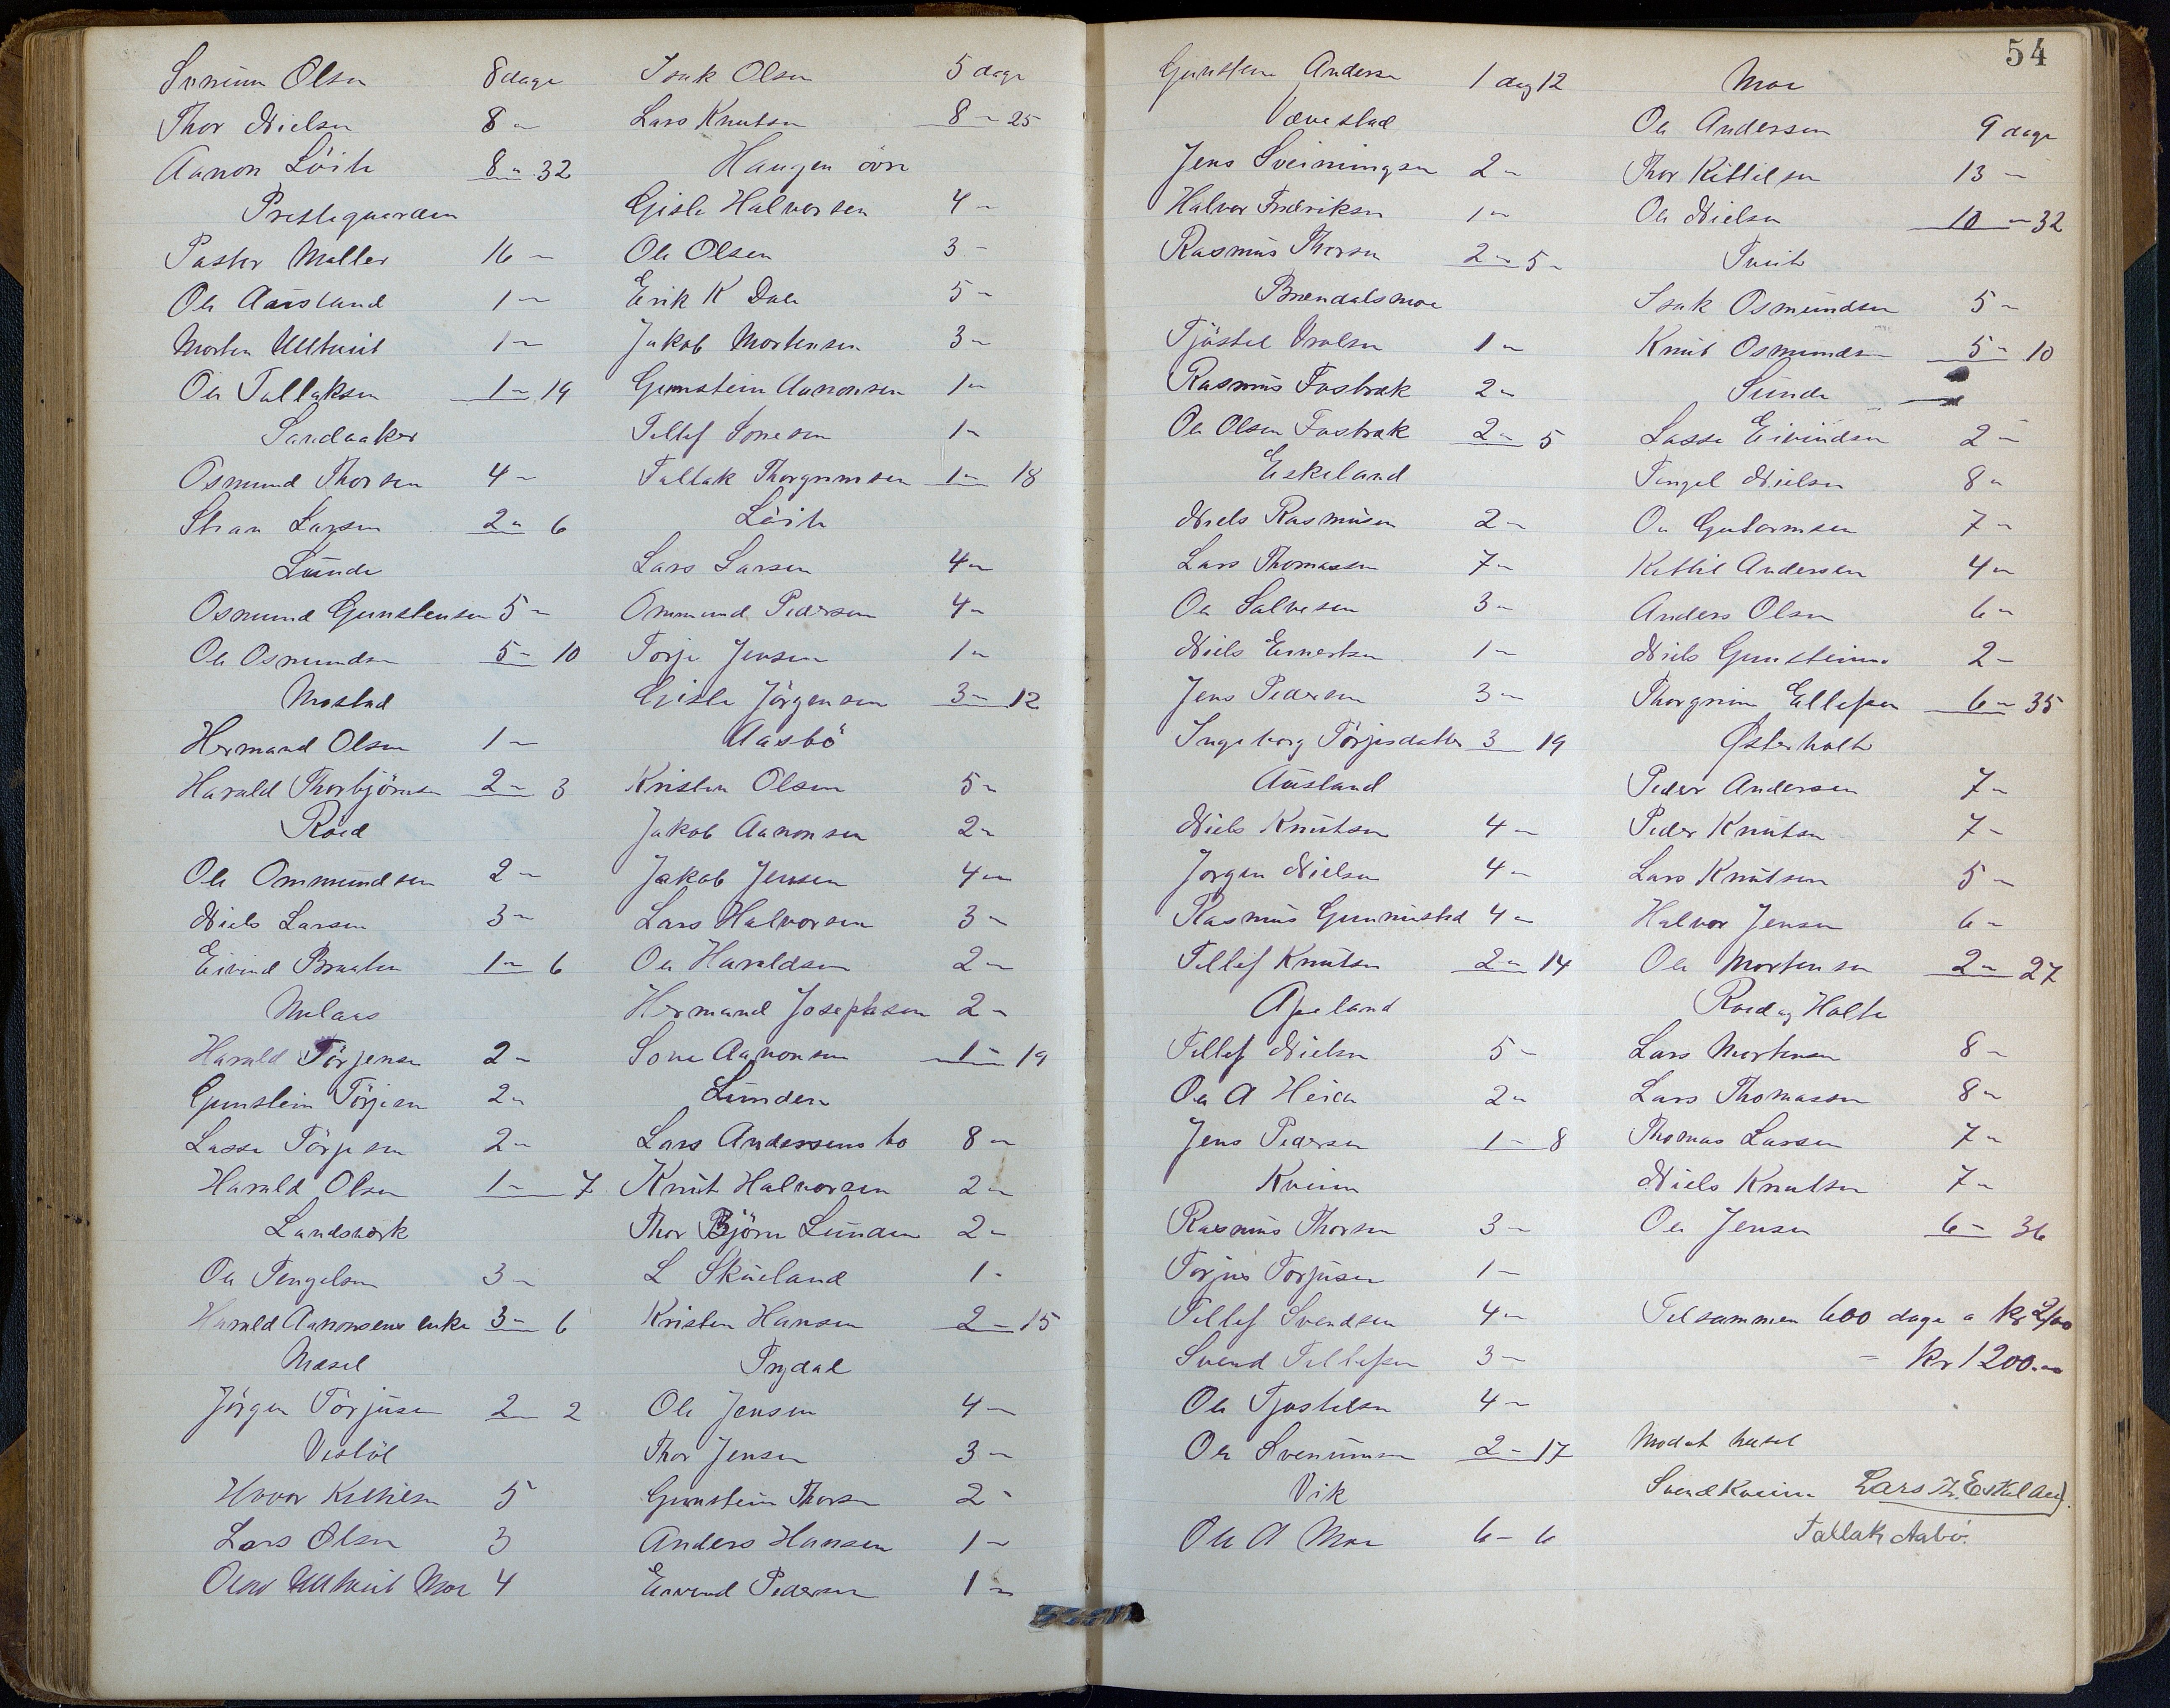 Olsen 8 dage
Thor Nielsen 8 "
Aanon Löite 8 " 32
Prestegaarden
Pastor Møller 16 "
Ole Aasland 1 "
Morten Ulltveit 1 "
Ole Tallaksen 1 " 19
Sandaaker
Osmund Thorsen 4 "
Stian Larsen 2 " 6
Lunde
Osmund Gunstensen 5 "
Ole Osmundsen 5 " 10
Mostad
Hermand Olsen 1 "
Harald Thorbjörnsen 2 " 3
Röed
Ole Ommundsen 2 "
Niels Larsen 3 "
Eivind Braaten 1 " 6
Melaas
Harald Törjesen 2 "
Gunstein Törjesen 2 "
Lasse Törjesen 2 "
Harald Olsen 1 " 7
Landsverk
Ole Tengelsen 3 "
Harald Aanonsens enke 3 " 6
Mæsel
Jörgen Törjusen 2 2
Vestöl
Hovor Kittilsen 5
Lars Olsen 3
Olav Ulltveit Moe 4
Isak Olsen 5 dage
Lars Knutsen 8 " 25
Haugen övre
Gisle Halvorsen 4 "
Ole Olsen 3 "
Erik K Dale 5 "
Jakob Mortensen 3 "
Gunstein Aanonsen 1 "
Tellef Sonesen 1 "
Tallak Thorgrimsen 1 " 18
Löite
Lars Larsen 4 "
Ommund Pedersen 4 "
Torje Jensen 1 "
Gisle Jörgensen 3 " 12
Aasbö
Kristen Olsen 5 "
Jakob Aanonsen 2 "
Jakob Jensen 4 "
Lars Halvorsen 3 "
Ole Haraldsen 2 "
Hermand Josephsen 2 "
Sone Aanonsen 1 " 19
Lunden
Lars Andersens bo 8 "
Knut Halvorsen 2 "
Thor Björn Lunden 2 "
L Skueland 1 "
Kristen Hansen 2 " 15
Trydal
Ole Jensen 4 "
Thor Jensen 3 "
Gunstein Thorsen 2 "
Anders Hansen 1 "
Eivend Pedersen 1 "
54
Gunsten Anderse 1 dag 12
Vævestad
Jens Sveinungsen 2 "
Halvor Fredriksen 1 "
Rasmus Thorsen 2 " 5 "
Brændalsmoe
Tjöstel Oralsen 1 "
Rasmus Fosbræk 2 "
Ole Olsen Fosbræk 2 " 5
Eskeland
Niels Rasmusen 2 "
Lars Thomassen 7 "
Ole Salvesen 3 "
Niels Ernertsen 1 "
Jens Pedersen 3 "
Ingeborg Törjesdatter 3 19
Ausland
Niels Knutsen 4 "
Jorgen Nielsen 4 "
Rasmus Gunnusted 4 "
Tellef Knutsen 2 " 14
Apeland
Tellef Nielsen 5 "
Ole A Heien 2 "
Jens Pedersen 1 " 8
Kveim
Rasmus Thorsen 3 "
Torjus Torjusen 1 "
Tellef Svendsen 4 "
Svend Tellefsen 3 "
Ole Tjostelsen 4 "
Ole Svenumsen 2 " 17
Vik
Ole A Moe 6 " 6
Moe
Ole Andersen 9 dage
Thor Kittilsen 13 "
Ole Nielsen 10 " 32
Tveit
Isak Osmundsen 5 "
Knut Osmundsen 5 " 10
Sunde
Lasse Eivindsen 2 "
Tengel Nielsen 8 "
Ole Gutormsen 7 "
Kittil Andersen 4 "
Anders Olsen 6 "
Niels Gunsteins. 2 "
Thorgrim Ellefsen 6 " 35
Østerholt
Peder Andersen 7 "
Peder Knutsen 7 "
Lars Knutsen 5 "
Halvor Jensen 6 "
Ole Mortensen 2 " 27
Röed og Holte
Lars Mortensen 8 "
Lars Thomassen 8 "
Thomas Larsen 7 "
Niels Knutsen 7 "
Ole Jensen 6 " 36
Tilsammen 600 dage a kr 2/00
= kr 1200.00
Modat hæsel
Svend Kveim Lars Th. Eskeland.
Tallak Aabö.